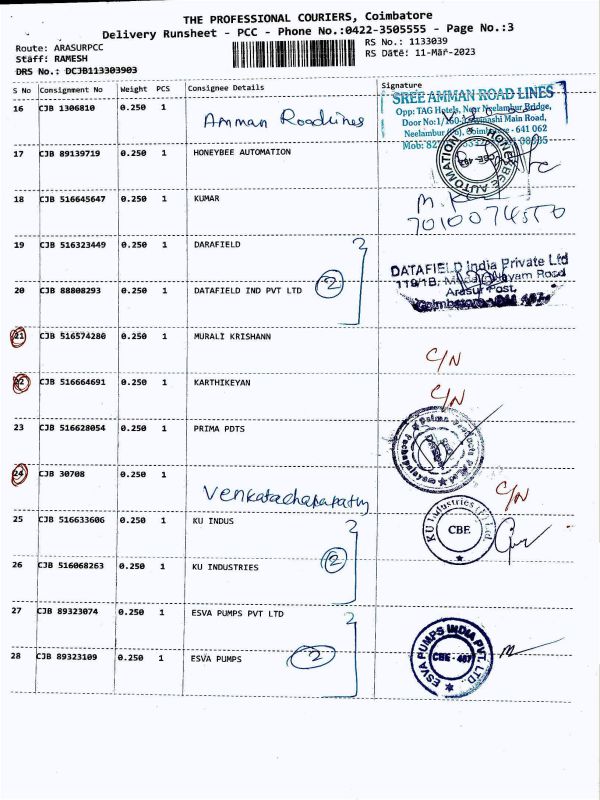 THE PROFESSIONAL COURIERS, Coimbatore
Delivery Runsheet - PCC - Phone No.:0422-3505555 - Page No.:3
Route: ARASURPCC
RS No.: 1133039
Staff: RAMESH
RS Date: 11-Mar-2023
DRS No.: DCJB113303903
S No Consignment No Weight PCS Consignee Details Signature
16 CJB 1306810 0.250 1 Amman Roadlines
SREE AMMAN ROAD LINES
Opp: TAG Hotels, Near Neelambur Bridge,
Door No:1/160 Main Road,
Neelambur Coimbatore - 641 062
Mob:
17 CJB 89139719 0.250 1 HONEYBEE AUTOMATION
HONEYBEE AUTOMATION
18 CJB 516645647 0.250 1 KUMAR
M.
7010074550
19 CJB 516323449 0.250 1 DARAFIELD
20 CJB 88808293 0.250 1 DATAFIELD IND PVT LTD 2
DATAFIELD India Private Ltd
119/1B, Road
Arasur Post,
Coimbatore 407
21 CJB 516574280 0.250 1 MURALI KRISHANN C/N
22 CJB 516664691 0.250 1 KARTHIKEYAN C/N
23 CJB 516628054 0.250 1 PRIMA PDTS
24 CJB 30708 0.250 1 Venkatachalapathy C/N
25 CJB 516633606 0.250 1 KU INDUS
KU Industries (P) Ltd.
CBE
26 CJB 516068263 0.250 1 KU INDUSTRIES 2
27 CJB 89323074 0.250 1 ESVA PUMPS PVT LTD
28 CJB 89323109 0.250 1 ESVA PUMPS 2
ESVA PUMPS INDIA PVT. LTD.
CBE - 407